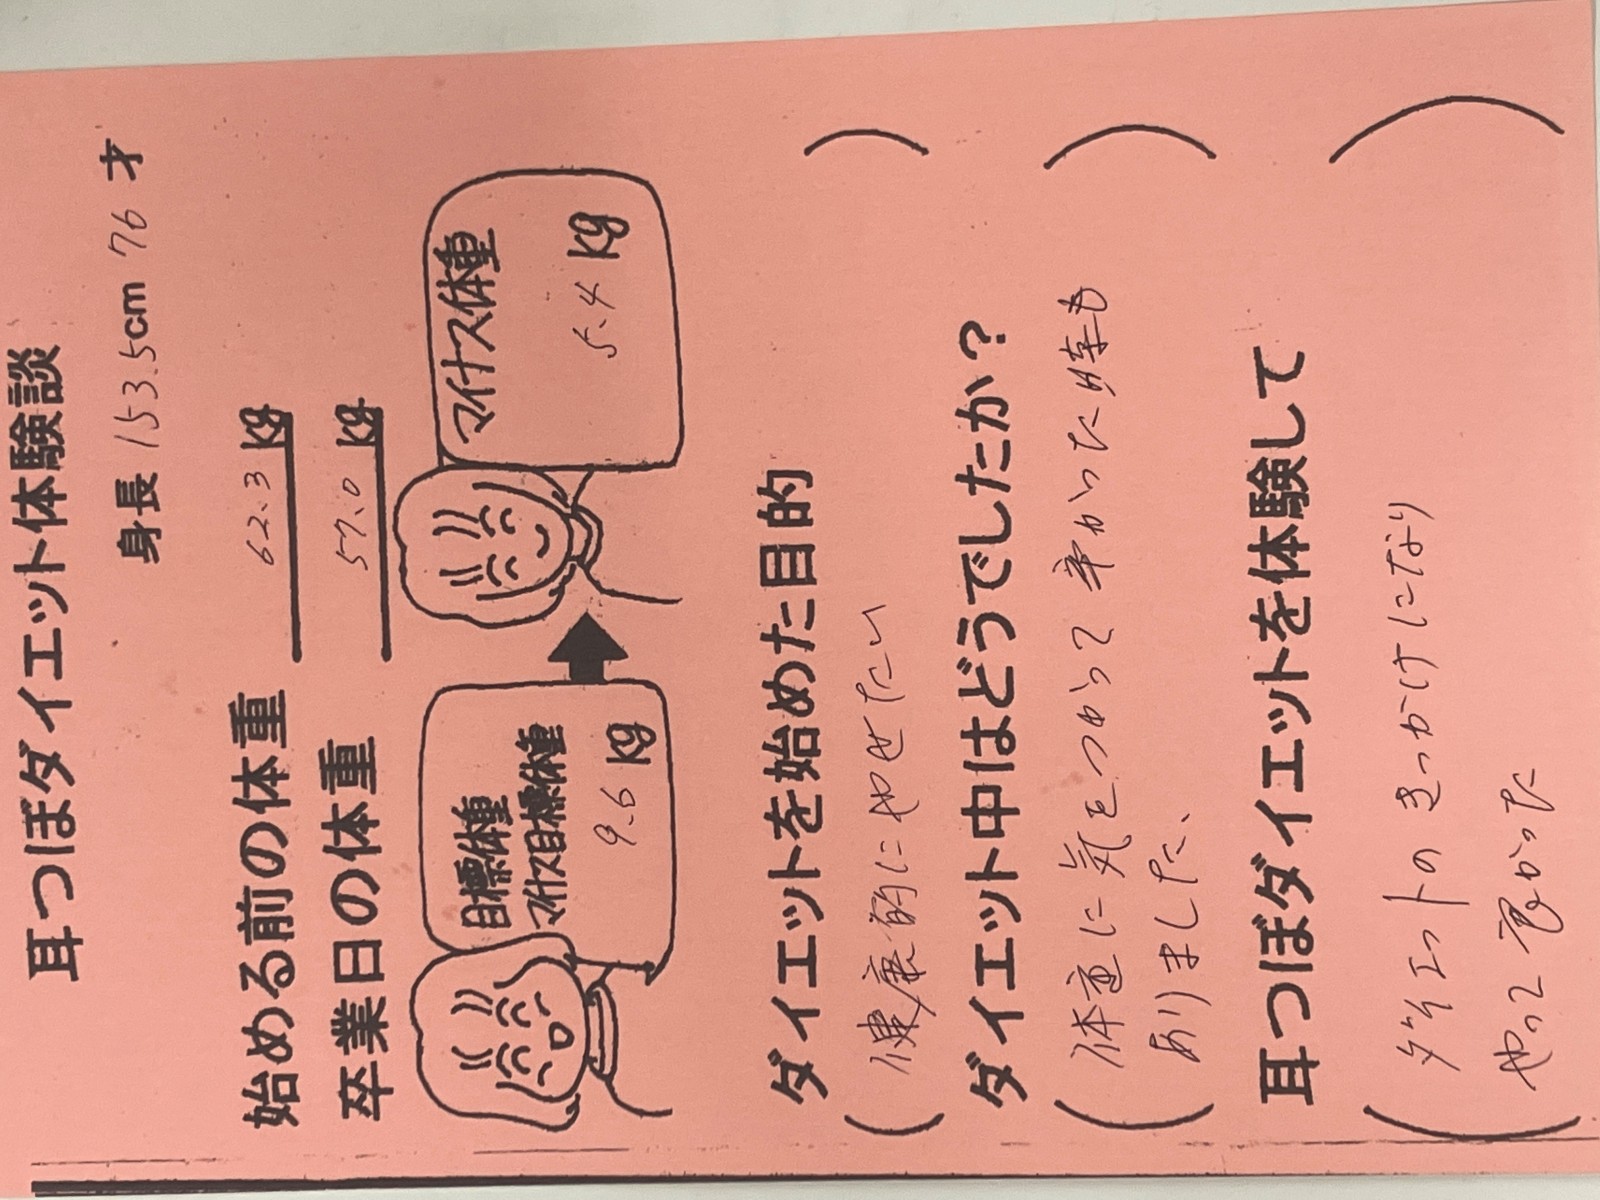 耳つぼダイエット体験談
身長 153.5cm 76才
始める前の体重 62.3 kg
卒業日の体重 57.0 kg
目標体重
マイナス目標体重
9.6 kg
マイナス体重
5.4 kg
ダイエットを始めた目的
(健康的にやせたい)
ダイエット中はどうでしたか?
(体重に気をつかって辛かった時も
ありました、)
耳つぼダイエットを体験して
(ダイエットのきっかけになり
やって良かった)